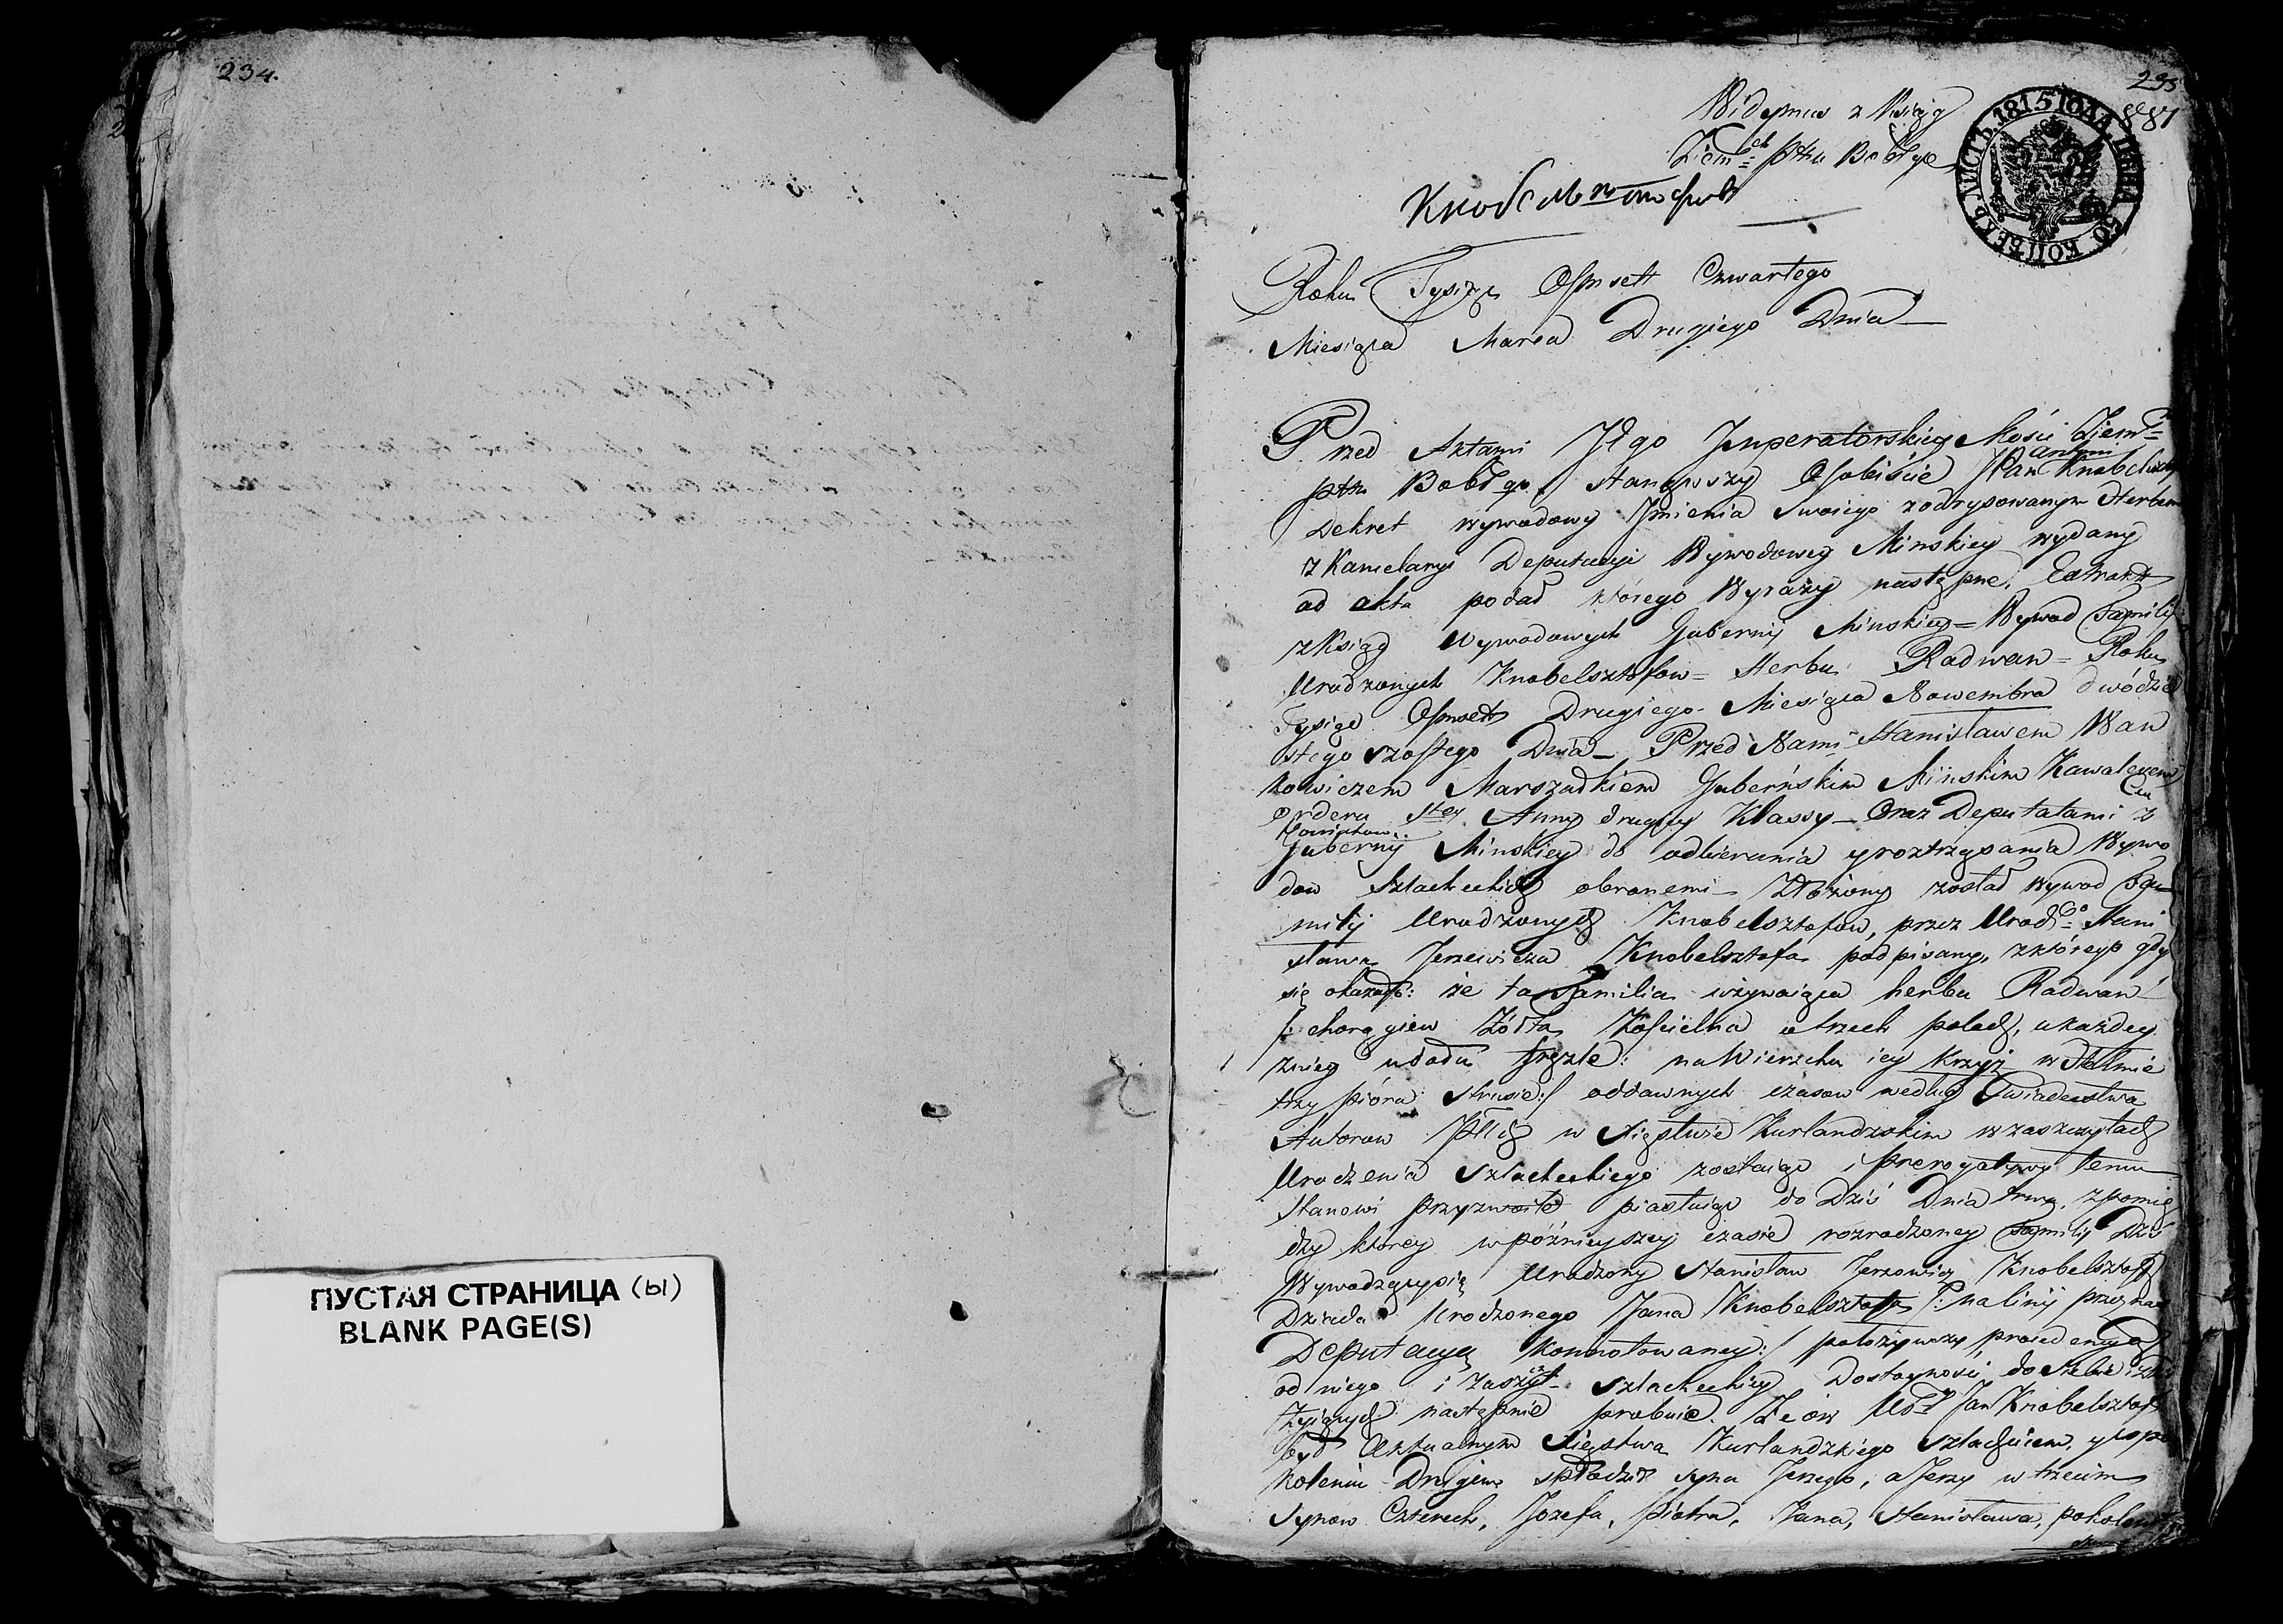 234.
ПУСТАЯ СТРАНИЦА (ы)
BLANK PAGE(S)
235
Widymus z Xsiąg
Ziemch pttu Bobłgo
ЛИСТЪ. 1815 ГОДА. ЦѢНА 50 КОПѢЕКЪ
Roku Tysiąc Osmsett Czwartego
Miesiąca Marca Drugiego Dnia
Przed Aktami Jego Imperatorskiey Mości Ziem
pttu Bobłgo, stanąwszy Osobiście JPan Antoni Knobelszto
Dekret wywodowy Imienia swoiego z odrysowanym Herbem
z Kancelaryi Deputacyi Wywodowey Minskiey wydany
ad akta podał którego Wyrazy następne, Extrakt
z Ksiąg Wywodowych Gubernij Minskiey = Wywod Familij
Urodzonych Knobelsztofow = Herbu Radwan = Roku
Tysiąc Osmsett Drugiego Miesiąca Nowembra dwódzie
stego szostego Dnia _ Przed Nami Stanisławem Wan
kowiczem Marszałkiem Guberńskim Mińskim Kawalerem
orderu Stey Anny drugiey Klassy _ Oraz Deputatami z
Powiatow
Gubernij Minskiey do odbierania y roztrząsania Wywo
dow Szlacheckich obranemi _ Złożony został Wywod Fa
milij Urodzonych Knobelsztofow, przez Urodgo Stani
sława Jerzewicza Knobelsztofa podpisany, z którego gdy
się okazało: że ta Familia używaiąca herbu Radwan
/: chorągiew żółta Kościelna o trzech polach, u każdey
z niey u dołu fręzle: na Wierzchu iey Krzyż w Hełmie
trzy pióra strusie:/ od dawnych czasow według Swiadectwa
Autorow w Xięstwie Kurlandzskim w zaszczytach
Urodzenia Szlacheckiego zostaiąc i prerogatywy temu
Stanowi przyzwoite piastuiąc do Dziś Dnia trwa, z pomię
dzy którey w późnieyszey czasie rozrodzoney Familij Dziś
Wywodzący się Urodzony Stanisław Jerzowicz Knobelsztoff
Dziada Urodzonego Jana Knobelsztoffa /: na linij przez nas
Deputacyą konnotowaney:/ położywszy, procedencyą
od niego i zaszczyt Szlacheckiey Dostoyności do siebie
życiących następnie probuie. Że ów Urod Jan Knobelsztoff
był Aktualnym Xięstwa Kurlandzkiego Szlachcicem, y w po
koleniu Drugiem spłodził syna Jerzego, a Jerzy w trzecim
Synow Czterech, Jozefa, Piotra, Jana, Stanisława, pokoleni